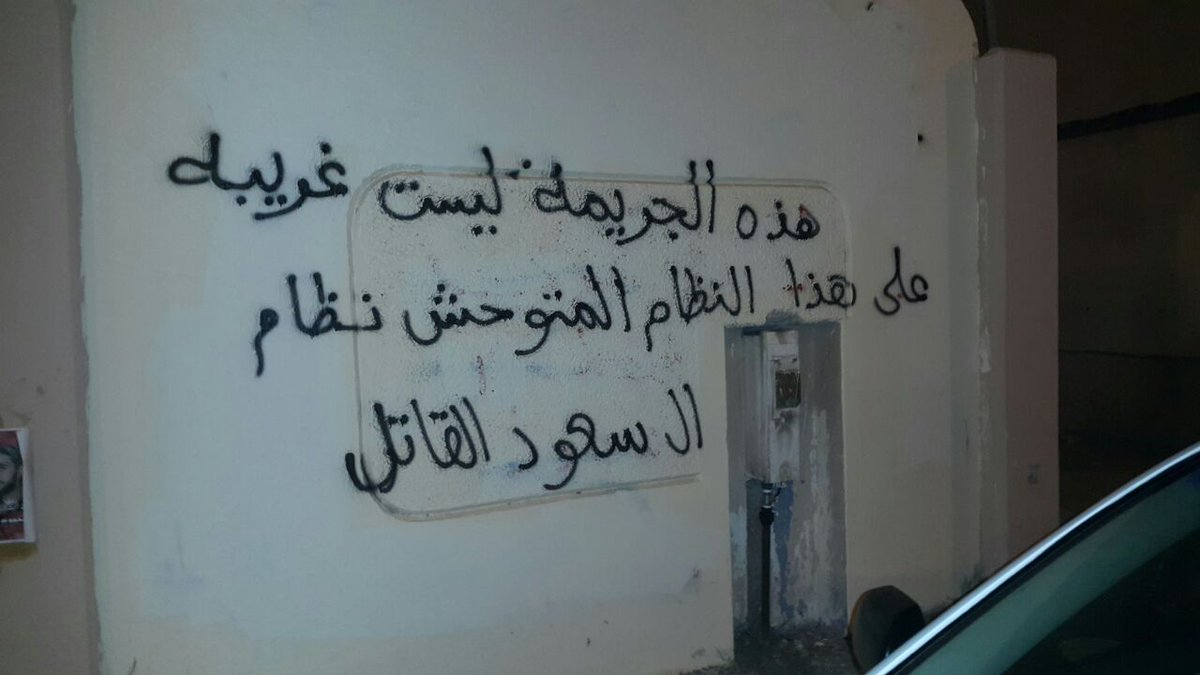 هذه الجريمة ليست غريبه
على هذا النظام المتوحش نظام
ال سعود القاتل